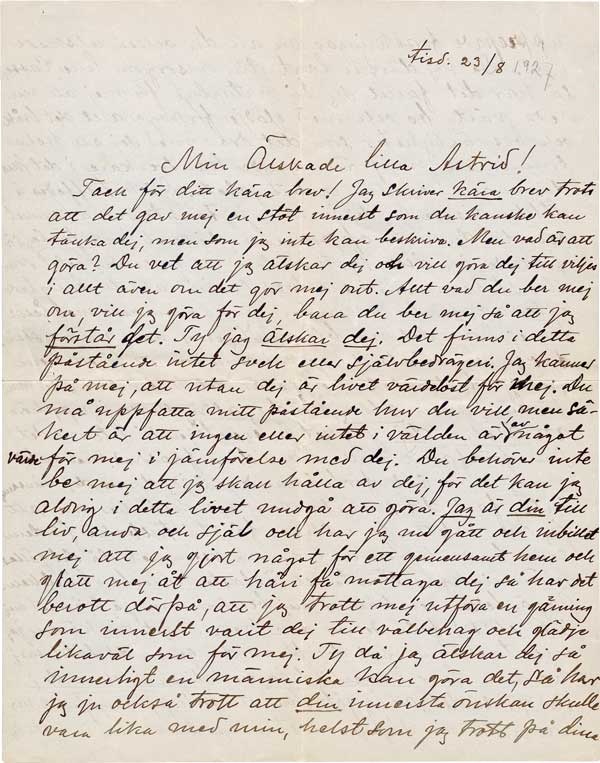 tisd. 23/8 1927
Min Älskade lilla Astrid!
Tack för ditt kära brev! Jag skriver kära brev trots
att det gav mej en stöt innerst som du kanske kan
tänka dej, men som jag inte kan beskriva. Men vad är att
göra? Du vet att jag älskar dej och vill göra dej till viljes
i allt även om det gör mej ont. Allt vad du ber mej
om, vill jag göra för dej, bara du ber mej så att jag
förstår det. Ty jag älskar dej. Det finns i detta
påstående intet svek eller självbedrägeri. Jag känner
på mej, att utan dej är livet värdelöst för mej. Du
må uppfatta mitt påstående hur du vill, men sä-
kert är att ingen eller intet i världen är av något
värde för mej i jämförelse med dej. Du behöver inte
be mej att jag skall hålla av dej, för det kan jag
aldrig i detta livet undgå att göra. Jag är din till
liv, anda och själ och har jag nu gått och inbillat
mej att jag gjort något för ett gemensamt hem och
glatt mej åt att häri få mottaga dej så har det
berott därpå, att jag trott mej utföra en gärning
som innerst varit dej till välbehag och glädje
likaväl som för mej. Ty då jag älskar dej så
innerligt en människa kan göra det, så har
jag ju också trott att din innersta önskan skulle
vara lika med min, helst som jag trott på dina